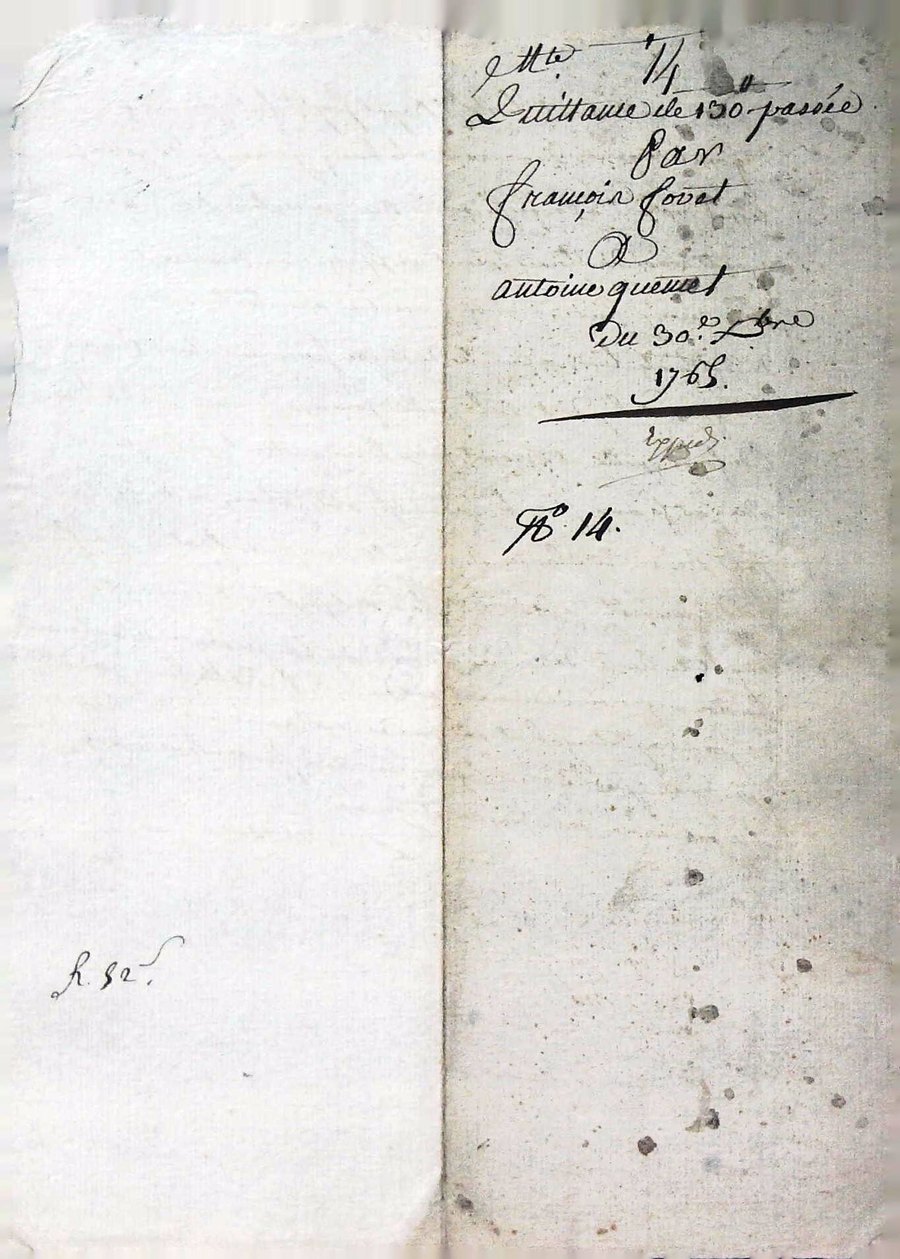 14
Quittance de 130ᴸᴸ passée
Par
françois fovet
A
antoine quemet
Du 30.e Xbre
1765.
Expedi.
N° 14.
R. 52 s.